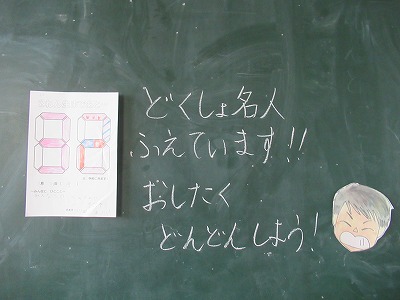 どくしょ名人
ふえています!!
おしたく
どんどんしよう!